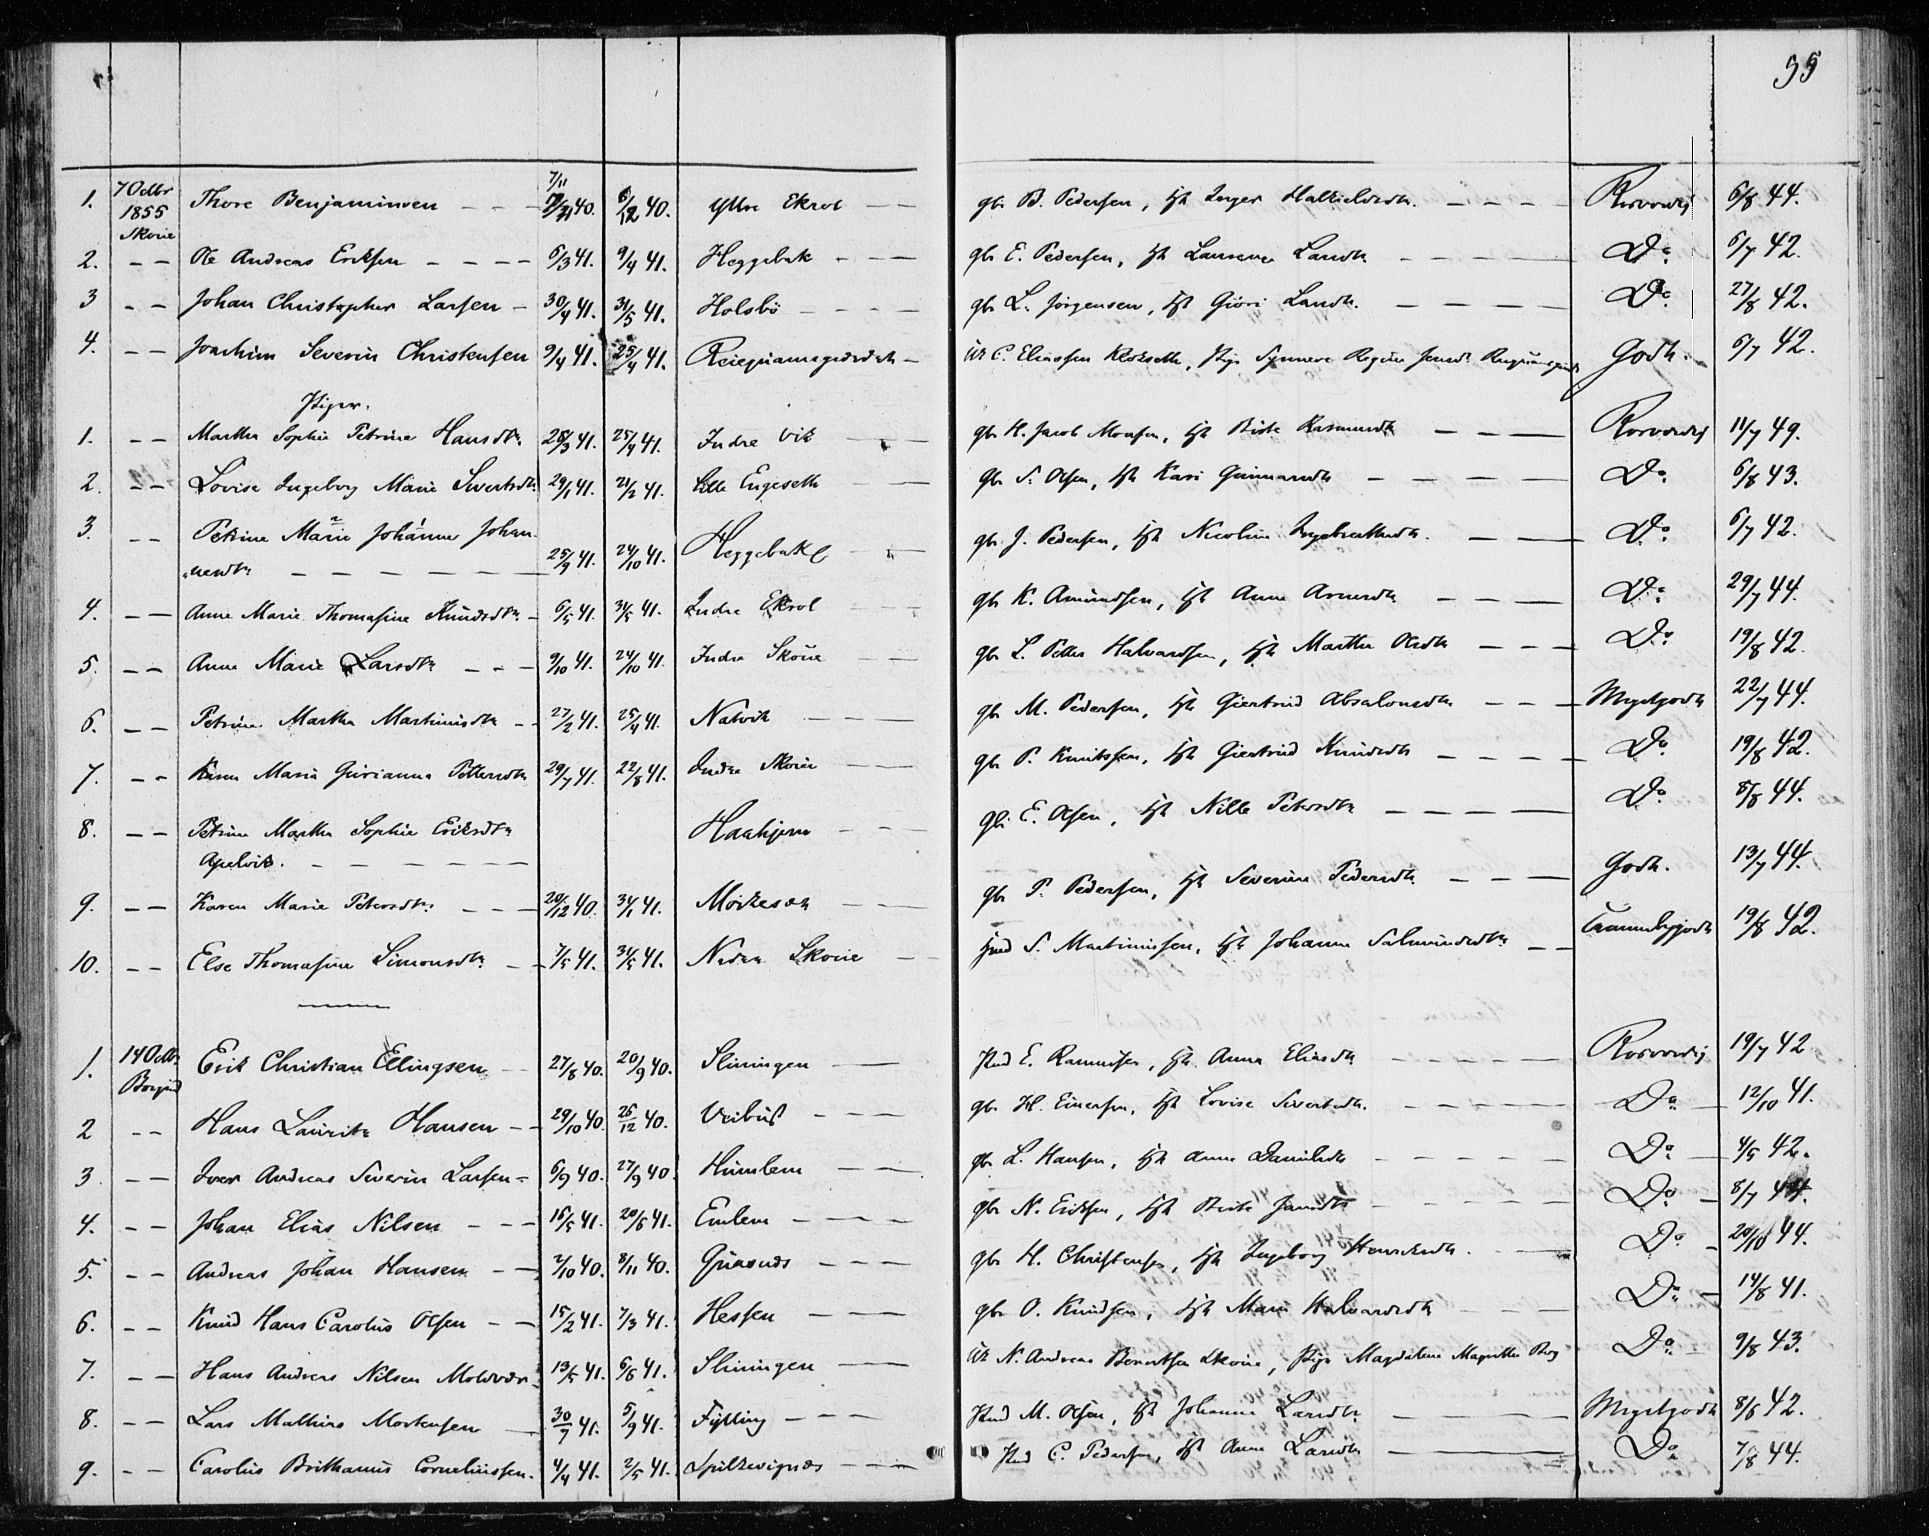 55
1. 7 Octbr 1855 Skoue Thore Benjaminsen - - 7/11 40. 6/12 40. Ytre Ekrol - - gbr B. Pedersen, Hst Inger Halkieldsdtr. - - - - Rosvoldsg 6/8 44.
2. - - Ole Andreas Eriksen - - - - 6/3 41. 9/4 41. Heggebak - - - gbr E. Pedersen, Hst Larsdtr - - - - Do 6/7 42.
3 - - Johan Christopher Larsen - 30/4 41. 31/5 41. Holsbö - - - - gbr L. Jörgensen, Hst Giöri Larsdtr. - - - - Do 27/8 42.
4. - - Joachim Severin Christensen 9/4 41. 25/4 41. - C. Eliassen Synneve Godh. 6/7 42.
Piger.
1. - - Martha Sophie Petrine Hansdtr. 25/3 41. 25/4 41. Indre Vik - - gbr H. Jacob Monsen, Hst Birte Rasmusdtr - - - 11/7 49.
2. - - Lovise Ingeborg Marie Sivertsdtr 29/1 41. 21/2 41. Lille Engeseth - - gbr S. Olsen, Hst Kari Gunnarsdtr - - - - Do 6/8 43.
3. - - Petrine Marie Johanne Johan-
nesdtr - - - - - - 25/9 41. 24/10 41. Heggebakk - - gbr J. Pedersen, Hst Nicoline - - - Do 6/7 42.
4. - - Anne Marie Thomasine Knudsdtr - 6/5 41. 31/5 41. Indre Ekrol - - gbr K. Amundsen, Hst Anne Arnesdtr - - - Do 29/7 44.
5 - - Anne Marie Larsdtr - - - 9/10 41. 24/10 41. Indre Skoue - - gbr L. Petter Halvardsen, Hst Martha Olsdtr - - - Do 19/8 42.
6. - - Petrine Martha Martinusdtr - - 27/2 41. 25/4 41. Natvik - - - gbr M. Pedersen, Hst Giertrud Absalonsdtr - - - Myrlgodh 22/7 44.
7. - - Maria Pettersdtr 29/7 41. 22/8 41. Indre Skoue - - gbr P. Knutssen, Hst Giertrud Knudsdtr - - - - Do 19/8 42.
8. - - Petrine Martha Sophie Eriksdtr
Apelvik. - - - - - - Haahjem - - gbr E. Olsen, Hst Nille Petersdtr - - - - Do 8/8 44.
9. - - Karen Marie Petersdtr: - - - 20/12 40. 31/1 41. - - gbr P. Pedersen, Hst Severine Pedersdtr - - - Godh. 13/7 44.
10. - - Else Thomasine Simonsdtr - - 7/5 41. 31/5 41. Nedre Skoue - - S. Martinussen, Hst Johanne Salmundsdtr - - 19/8 42.
1. 14 Octbr Borgund Erik Christian Ellingsen - - 27/8 40. 20/9 40. Sliningen - - E. Rasmussen, Hst Anna Eliasdtr - - - - 19/7 42
2 - - Hans Lauritz Hansen - - 29/10 40. 26/12 40. Veibust - - - gbr H. Einersen, Hst Lovise Sivertsdtr. - - - - Do 12/10 41.
3 - - Iver Andreas Severin Larsen - 6/9 40. 27/9 40. Humlem - - gbr L. Hansen, Hst Anne Danielsdtr - - - - Do 4/5 42.
4. - - Johan Elias Nilsen - - - 15/5 41. 20/6 41. Emlem - - - - gbr N. Eriksen, Hst Birte - - - - Do 8/7 44.
5. - - Andreas Johan Hansen - - 2/10 40. 8/11 40. - - - gbr H. Christensen, Hst Ingeborg - - Do 20/10 44.
6. - - Knud Hans Carolus Olsen - - 15/2 41. 7/3 41. Hessen - - - gbr O. Knudsen, Hst Marie Halvardsdtr - - - Do 14/8 41.
7. - - Hans Andreas Nilsen Moldvær 13/5 41. 6/6 41. Sliningen - - N. Andreas Berentsen Skoue, Pige Magdalene Do 9/8 43.
8. - - Lars Mathias Mortensen - 30/7 41. 5/9 41. Fylling - - - M. Olsen, Hst Johanne Larsdtr - - - Myrlgodh 8/6 42.
9. - - Carolus Brithanus Corneliussen - 4/4 41. 2/5 41. Spilkevignæs - - - C. Pedersen, Hst Anne Larsdtr - - - Do 7/8 44.